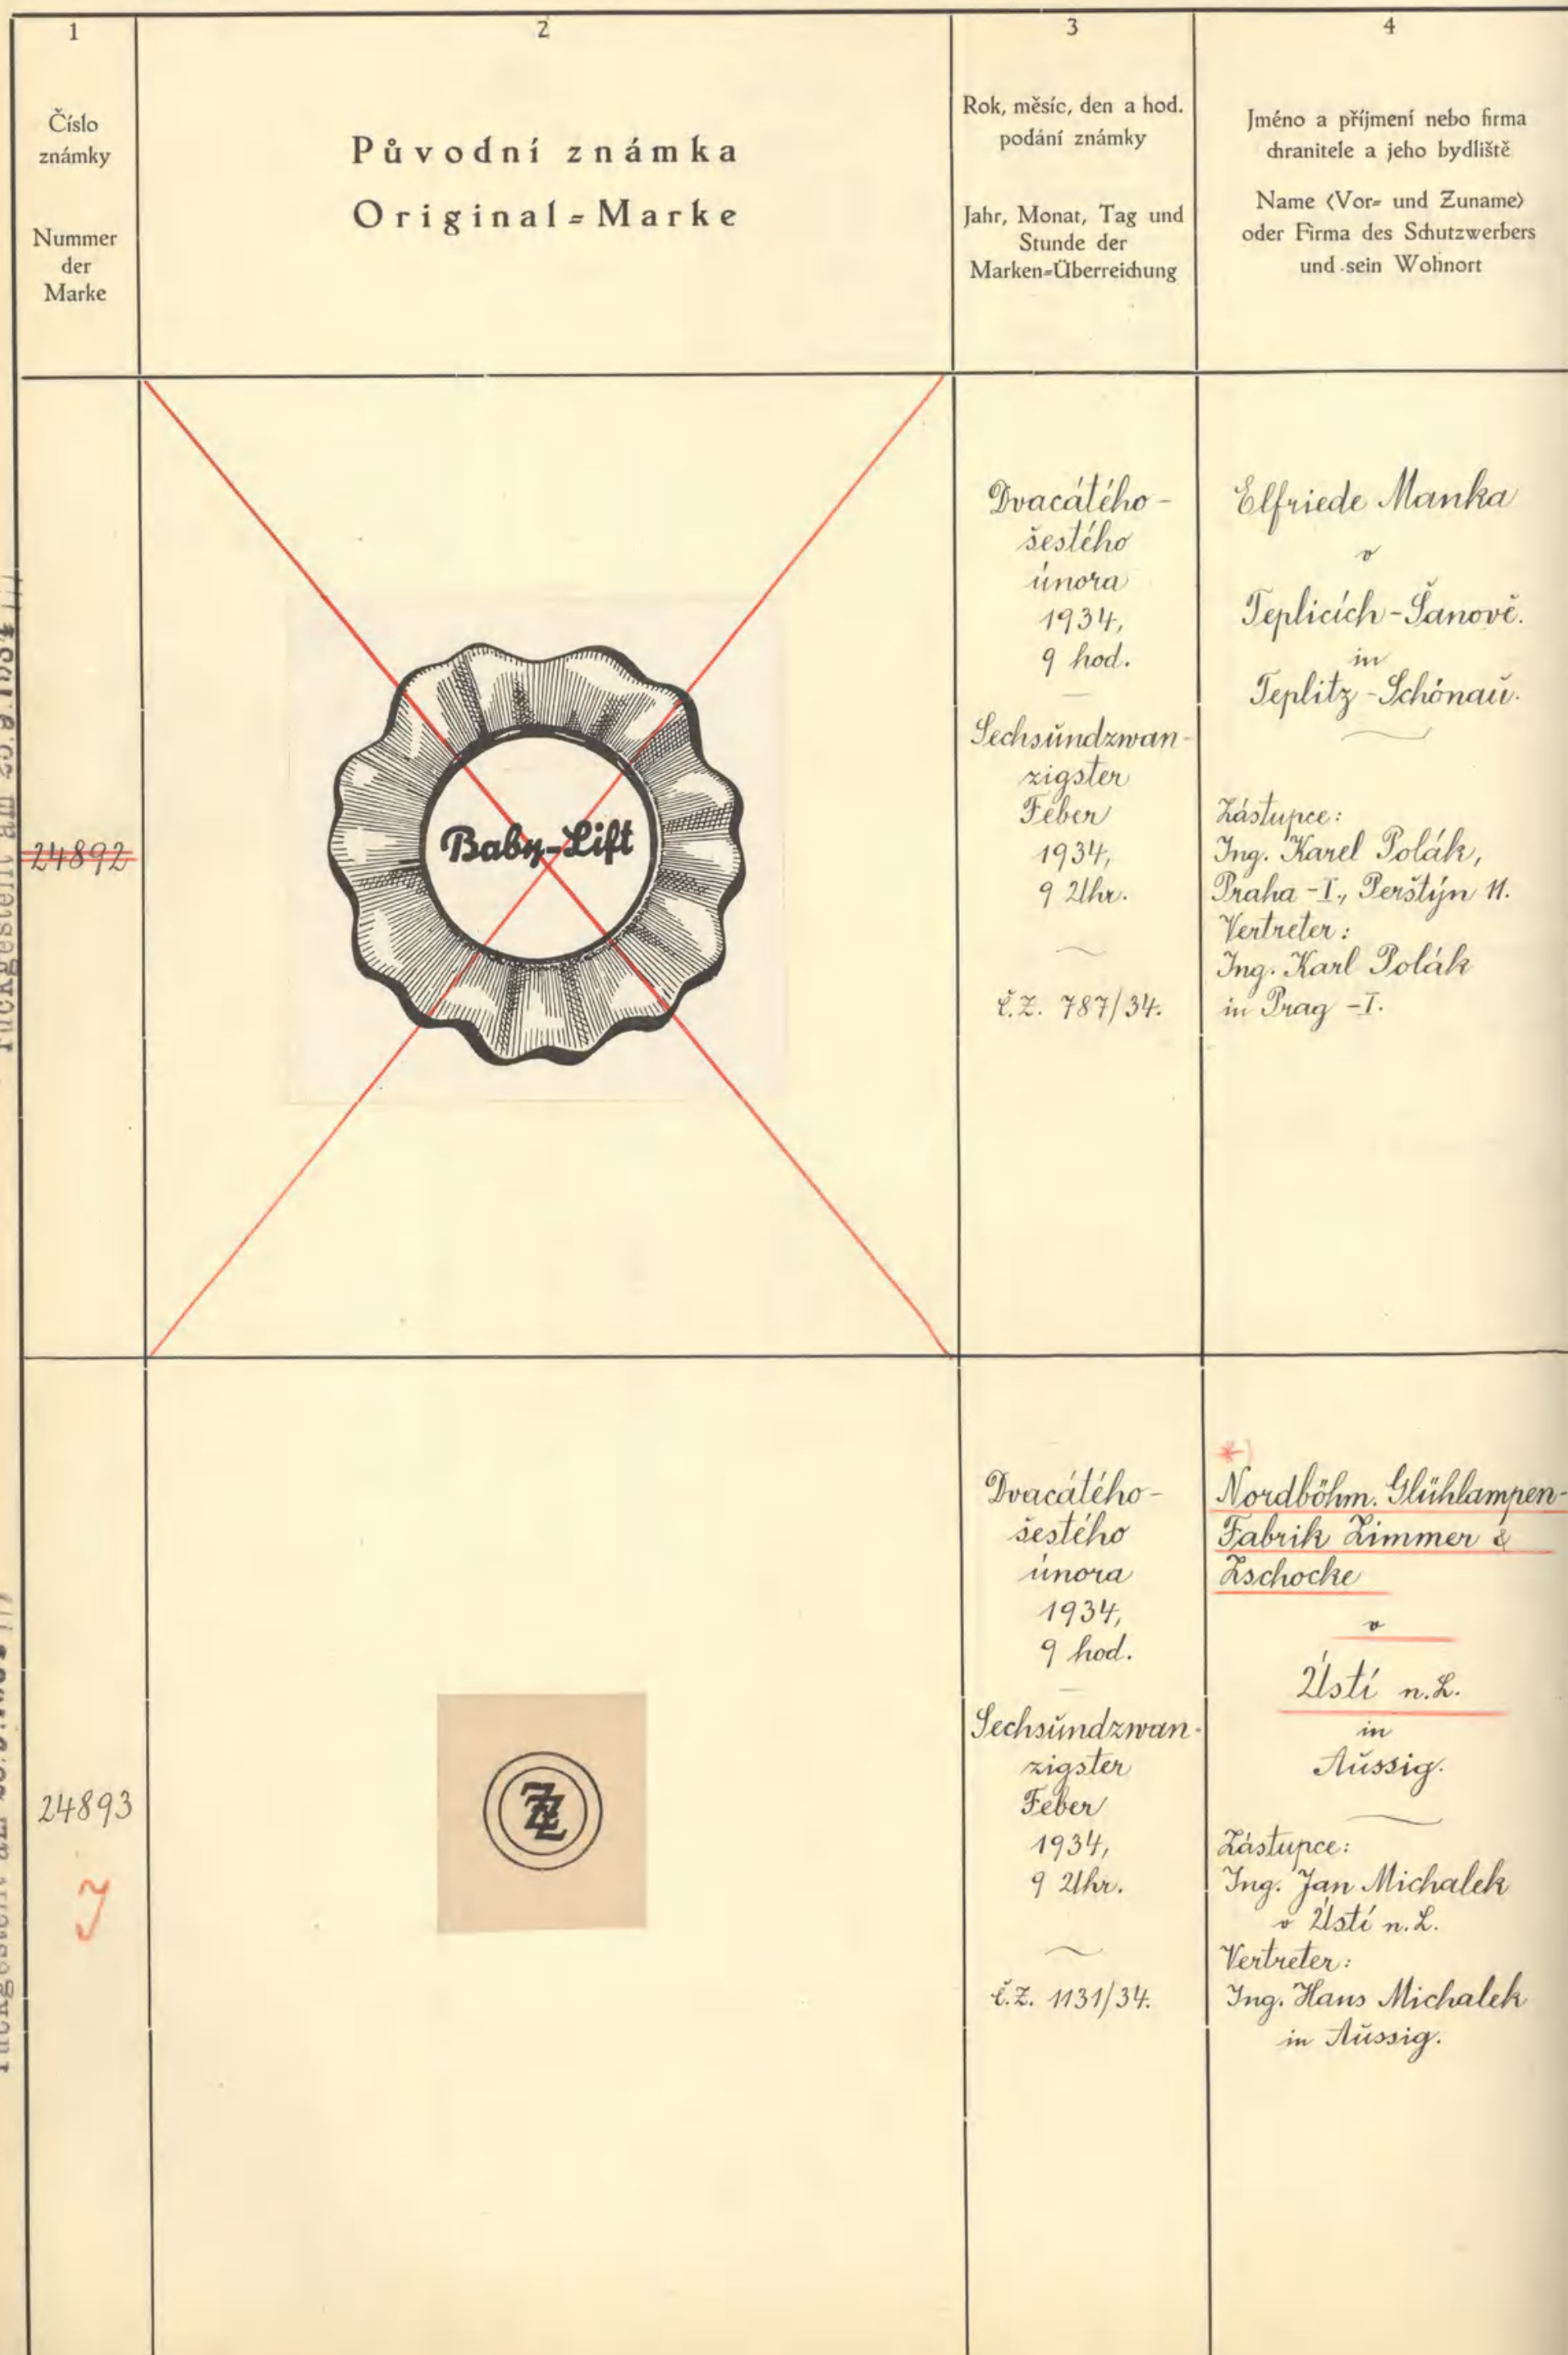 1
Číslo
známky
Nummer
der
Marke
2
Původní známka
Original=Marke
3
Rok, měsíc, den a hod.
podání známky
Jahr, Monat, Tag und
Stunde der
Marken=Überreichung
4
Jméno a příjmení nebo firma
chranitele a jeho bydliště
Name (Vor= und Zuname)
oder Firma des Schutzwerbers
und sein Wohnort
24892
Baby-Lift
Dvacátého-
šestého
února
1934,
9 hod.
Sechsundzwan-
zigster
Feber
1934,
9 Uhr.
č.z. 787/34.
Elfriede Manka
v
Teplicích-Šanově.
in
Teplitz-Schönau.
Zástupce:
Ing. Karel Polák,
Praha-I., Perštýn 11.
Vertreter:
Ing. Karl Polák
in Prag-I.
24893
ZZ
Dvacátého-
šestého
února
1934,
9 hod.
Sechsundzwan-
zigster
Feber
1934,
9 Uhr.
č.z. 1131/34.
*)
Nordböhm. Glühlampen-
Fabrik Zimmer &
Zschocke
v
Ústí n.L.
in
Aussig.
Zástupce:
Ing. Jan Michalek
v Ústí n.L.
Vertreter:
Ing. Hans Michalek
in Aussig.